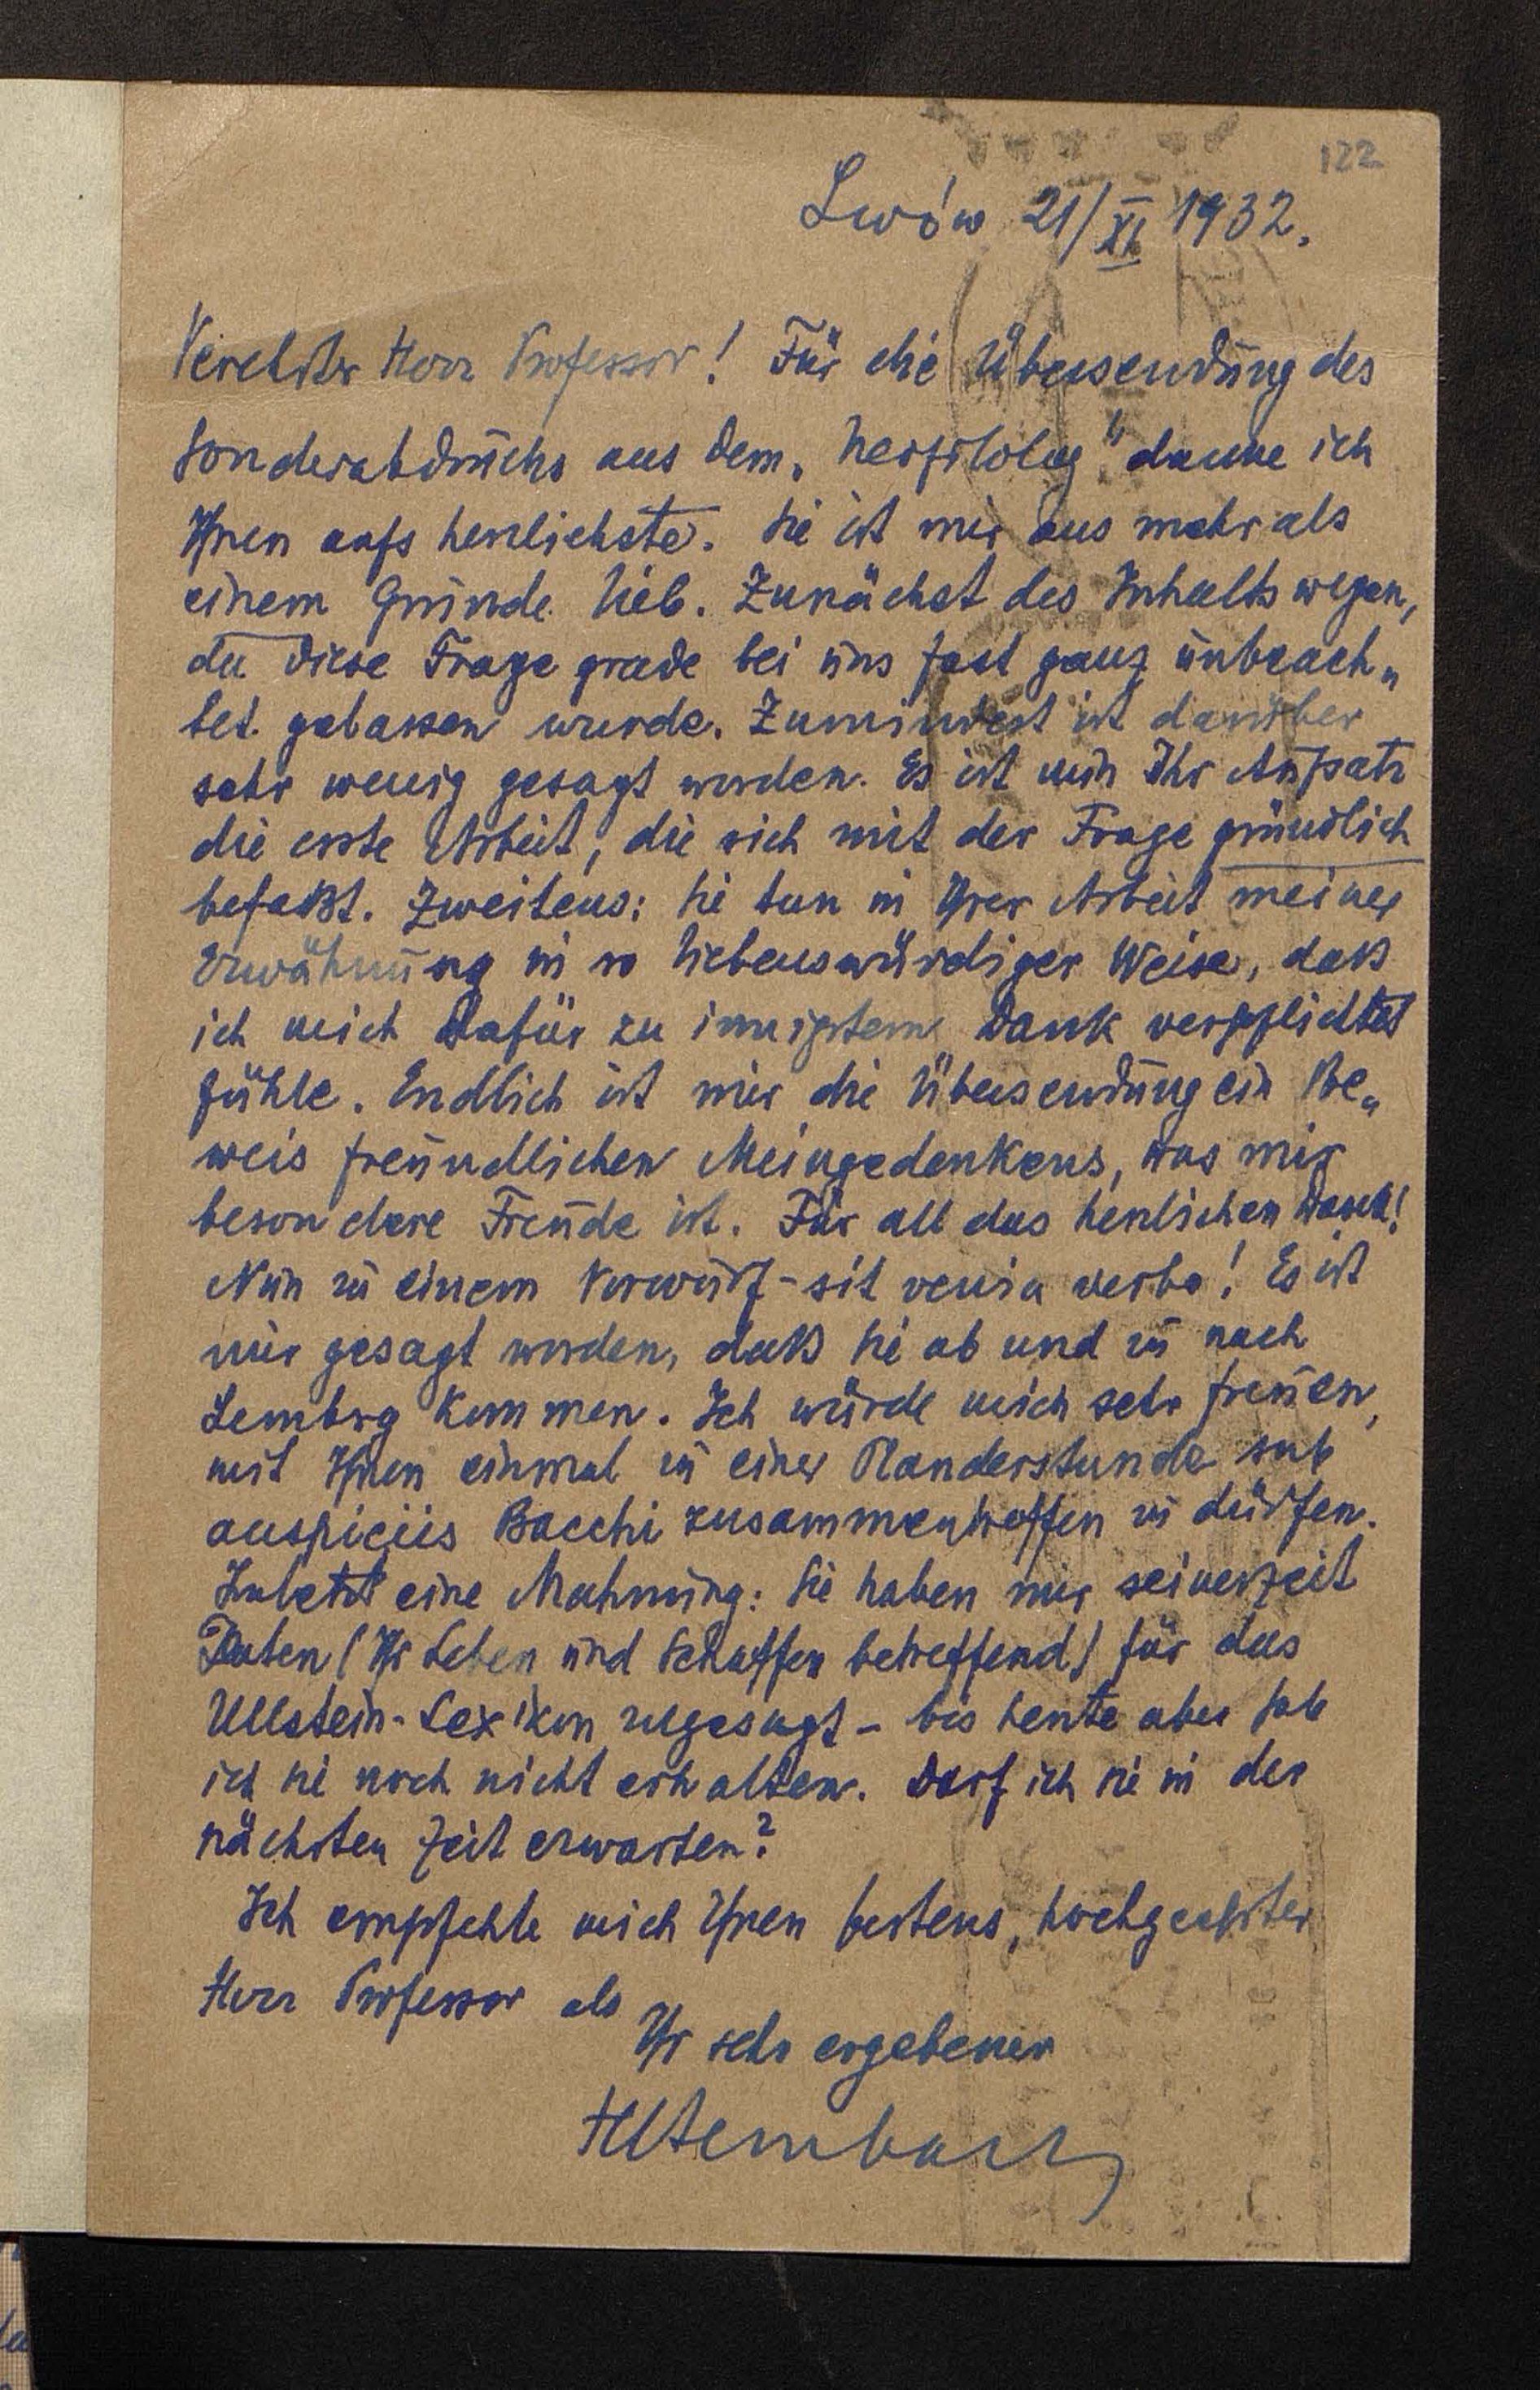 122
Lwów 21/XI 1932.
Verehrter Herr Professor! Für die Übersendung des
Sonderabdrucks aus dem „Neophilolog" danke ich
Ihnen aufs herzlichste. Sie ist mir aus mehr als
einem Grunde lieb. Zunächst des Inhalts wegen,
da diese Frage grade bei uns fast ganz unbeach„
tet gelassen wurde. Zumindest ist darüber
sehr wenig gesagt worden. Es ist nun Ihr Aufsatz
die erste Arbeit, die sich mit der Frage gründlich
befaßt. Zweitens: Sie tun in Ihrer Arbeit meiner
Erwähnung in so liebenswürdiger Weise, daß
ich mich dafür zu innigstem Dank verpflichtet
fühle. Endlich ist mir die Übersendung ein Be„
weis freundlichen Meingedenkens, was mir
besondere Freude ist. Für all das herzlichen Dank!
Nun zu einem Vorwurf - sit venia verbo! Es ist
mir gesagt worden, daß Sie ab und zu nach
Lemberg kommen. Ich würde mich sehr freuen,
mit Ihnen einmal zu einer Plauderstunde sub
auspiciis Bacchi zusammentreffen zu dürfen.
Zuletzt eine Mahnung: Sie haben mir seinerzeit
Daten (Ihr Leben und Schaffen betreffend) für das
Ullstein-Lexikon zugesagt - bis heute aber hab
ich sie noch nicht erhalten. Darf ich sie in der
nächsten Zeit erwarten?
Ich empfehle mich Ihnen bestens, hochgeehrter
Herr Professor als
Ihr sehr ergebener